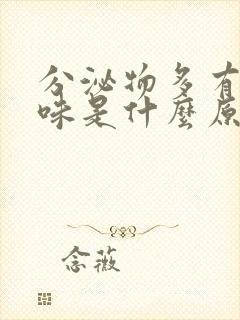 分泌物多有
味是什麼原
念薇